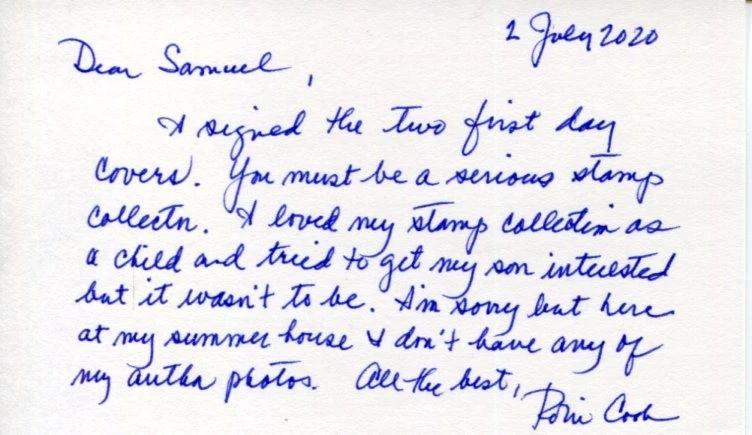 2 July 2020
Dear Samuel,
I signed the two first day
covers. You must be a serious stamp
collector. I loved my stamp collection as
a child and tried to get my son interested
but it wasn't to be. I'm sorry but here
at my summer house I don't have any of
my author photos. All the best,
Robin Cook